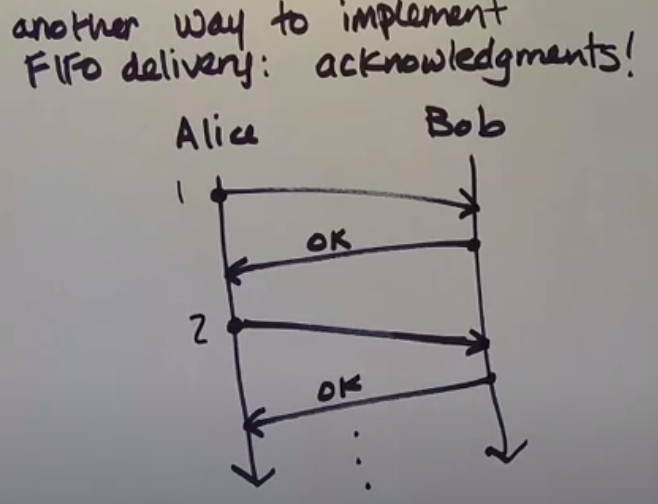 another way to implement
FIFO delivery: acknowledgments!
Alice
Bob
1
OK
2
OK